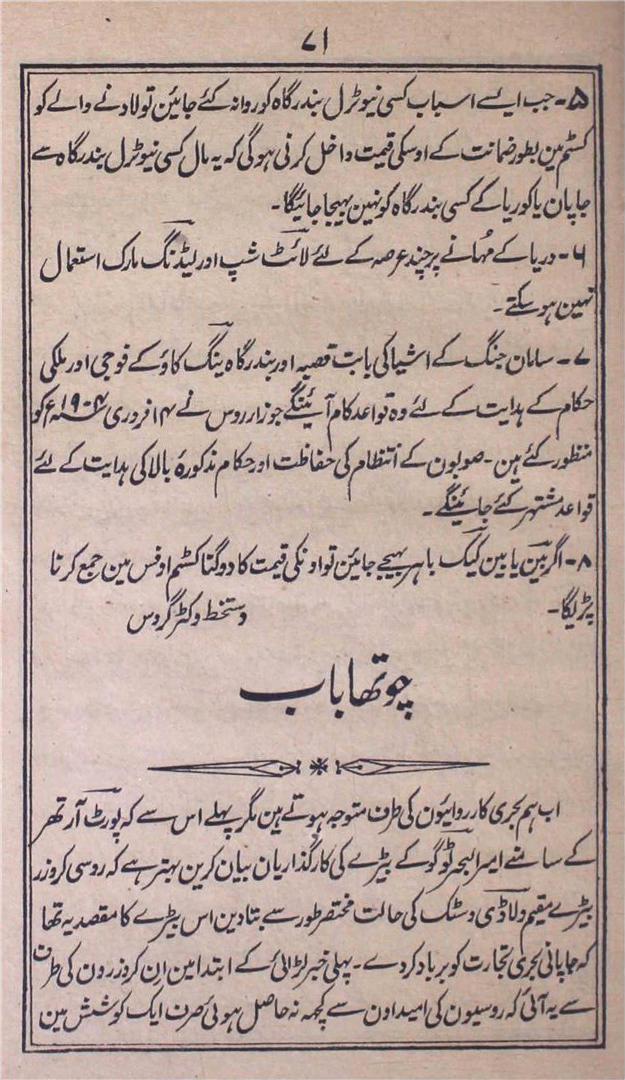 ۷۱
۵- جب ایسے اسباب کسی نیوٹرل بندرگاہ کو روانہ کئے جائین تو لادنے والے کو
کسٹم مین بطور ضمانت کے اوسکی قیمت داخل کرنی ہوگی کہ یہ مال کسی نیوٹرل بندرگاہ سے
جاپان یا کوریا کے کسی بندرگاہ کو نہین بھیجا جائیگا-
۶- دریا کے مُہانے پر چند عرصہ کے لئے لائٹ شپ اور لیڈنگ مارک استعمال
نہین ہو سکتے-
۷- سامان جنگ کے اشیا کی بابت قصبہ اور بندرگاہ ینگ کاؤ کے فوجی اور ملکی
حکام کے ہدایت کے لئے وہ قواعد کام آئینگے جو زار روس نے ۱۴ فروری ۱۹۰۴ء کو
منظور کئے ہین- صوبون کے انتظام کی حفاظت اور حکام مذکورۂ بالا کی ہدایت کے لئے
قواعد مشتہر کئے جائینگے-
۸- اگر بین یا بین کیک باہر بھیجے جائین تو اونکی قیمت کا دوگنا کسٹم اوفس مین جمع کرنا
پڑیگا-
دستخط وکٹر گروس
چوتھا باب
اب ہم بحری کارروائیون کی طرف متوجہ ہوتے ہین مگر پہلے اس سے کہ پورٹ آرتھر
کے سامنے امیر البحر ٹوگو کے بیڑے کی کارگذاریان بیان کرین بہتر ہے کہ روسی کروزر
بیڑے مقیم ولاڈی وسٹک کی حالت مختصر طور سے بتا دین اس بیڑے کا مقصد یہ تھا
کہ جاپانی بحری تجارت کو برباد کر دے- پہلی خبر لڑائی کے ابتدا مین اِن کروزرون کی طرف
سے یہ آئی کہ روسیون کی امید اون سے کچھہ نہ حاصل ہوئی صرف ایک کوشش مین